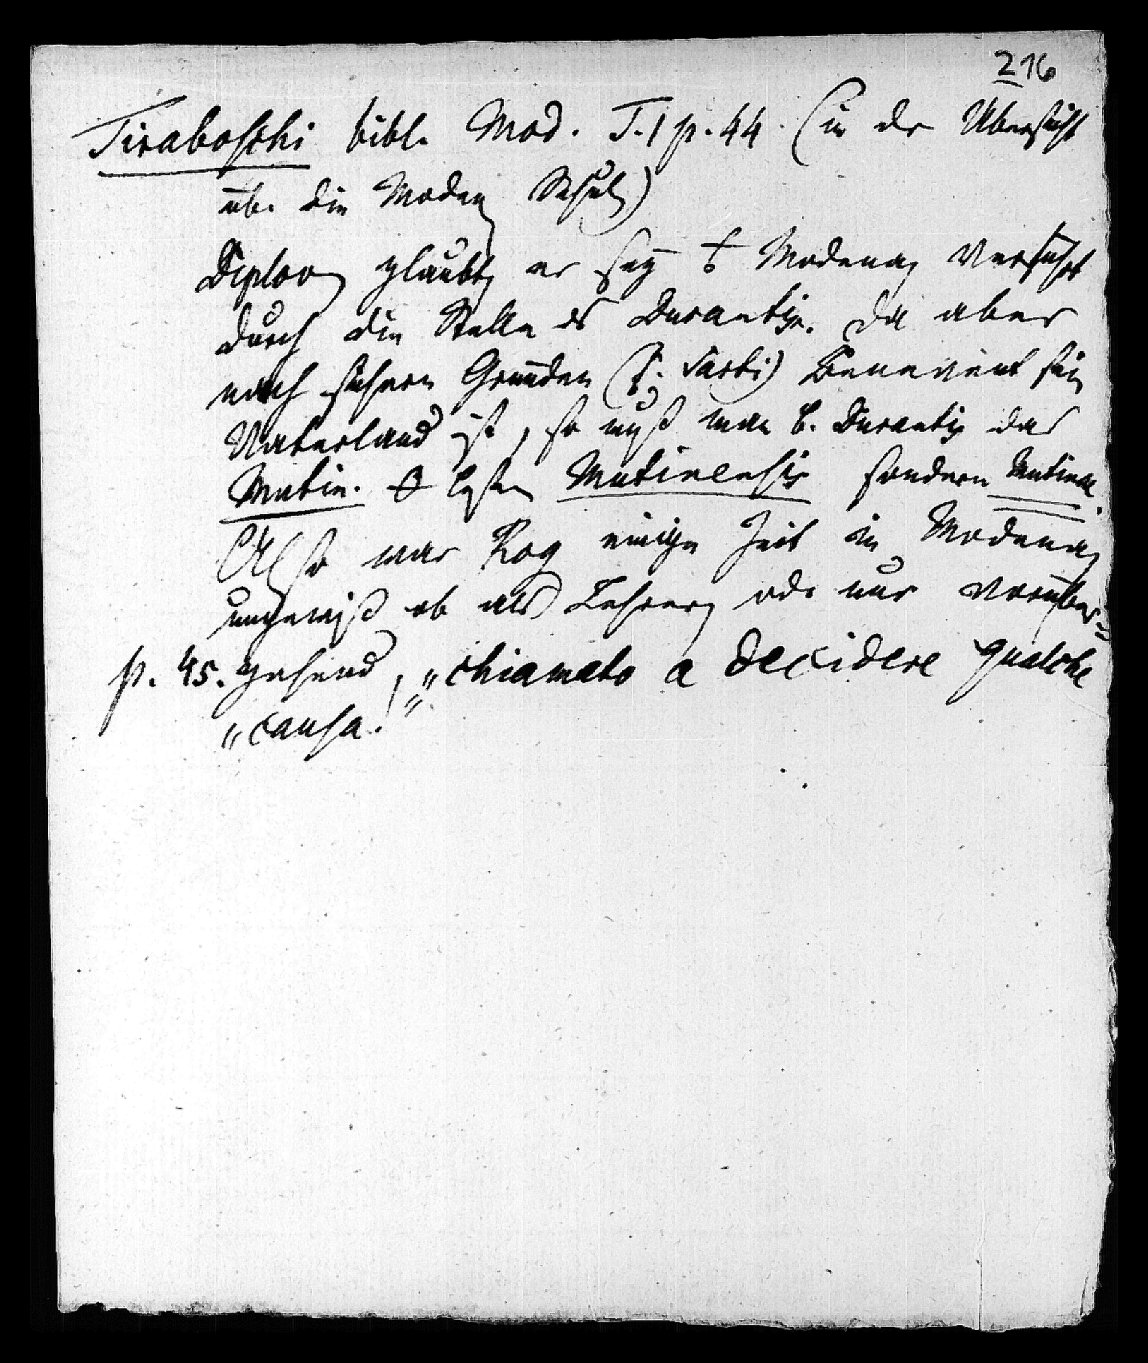 216
Tiraboschi bibl. Mod. T. 1 p. 44. (in der Übersicht
üb. die Moden Schul)
Diplov glaubt, er sey Modena, verführt
durch die Stelle des Durantis. Da aber
nach sichern Gründen (s. Sarti) Benevent sein
Vaterland ist, so muß man b. Durantis das
Mutin. lesen Mutinensis sondern Mutinae.
Also war Rog einige Zeit in Modena,
ungewiß ob als Lehrer, oder nur vorüber=
p. 45. gehend, „chiamato a decidere qualche
„causa."